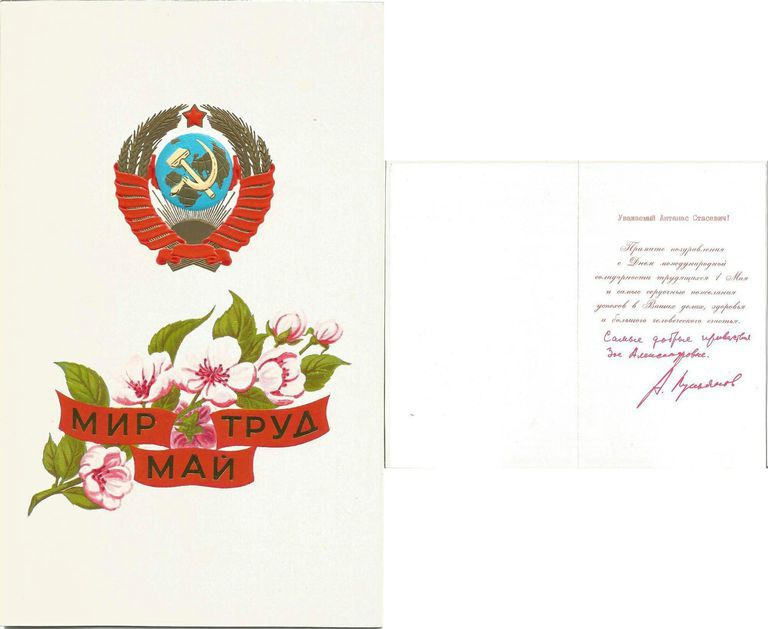 МИР ТРУД
МАЙ
Уважаемый Антанас Стасевич!
Примите поздравления
с Днем международной
солидарности трудящихся 1 Мая
и самые сердечные пожелания
успехов в Ваших делах, здоровья
и большого человеческого счастья.
Самые добрые приветствия
Зое Александровне.
А. Лукьянов